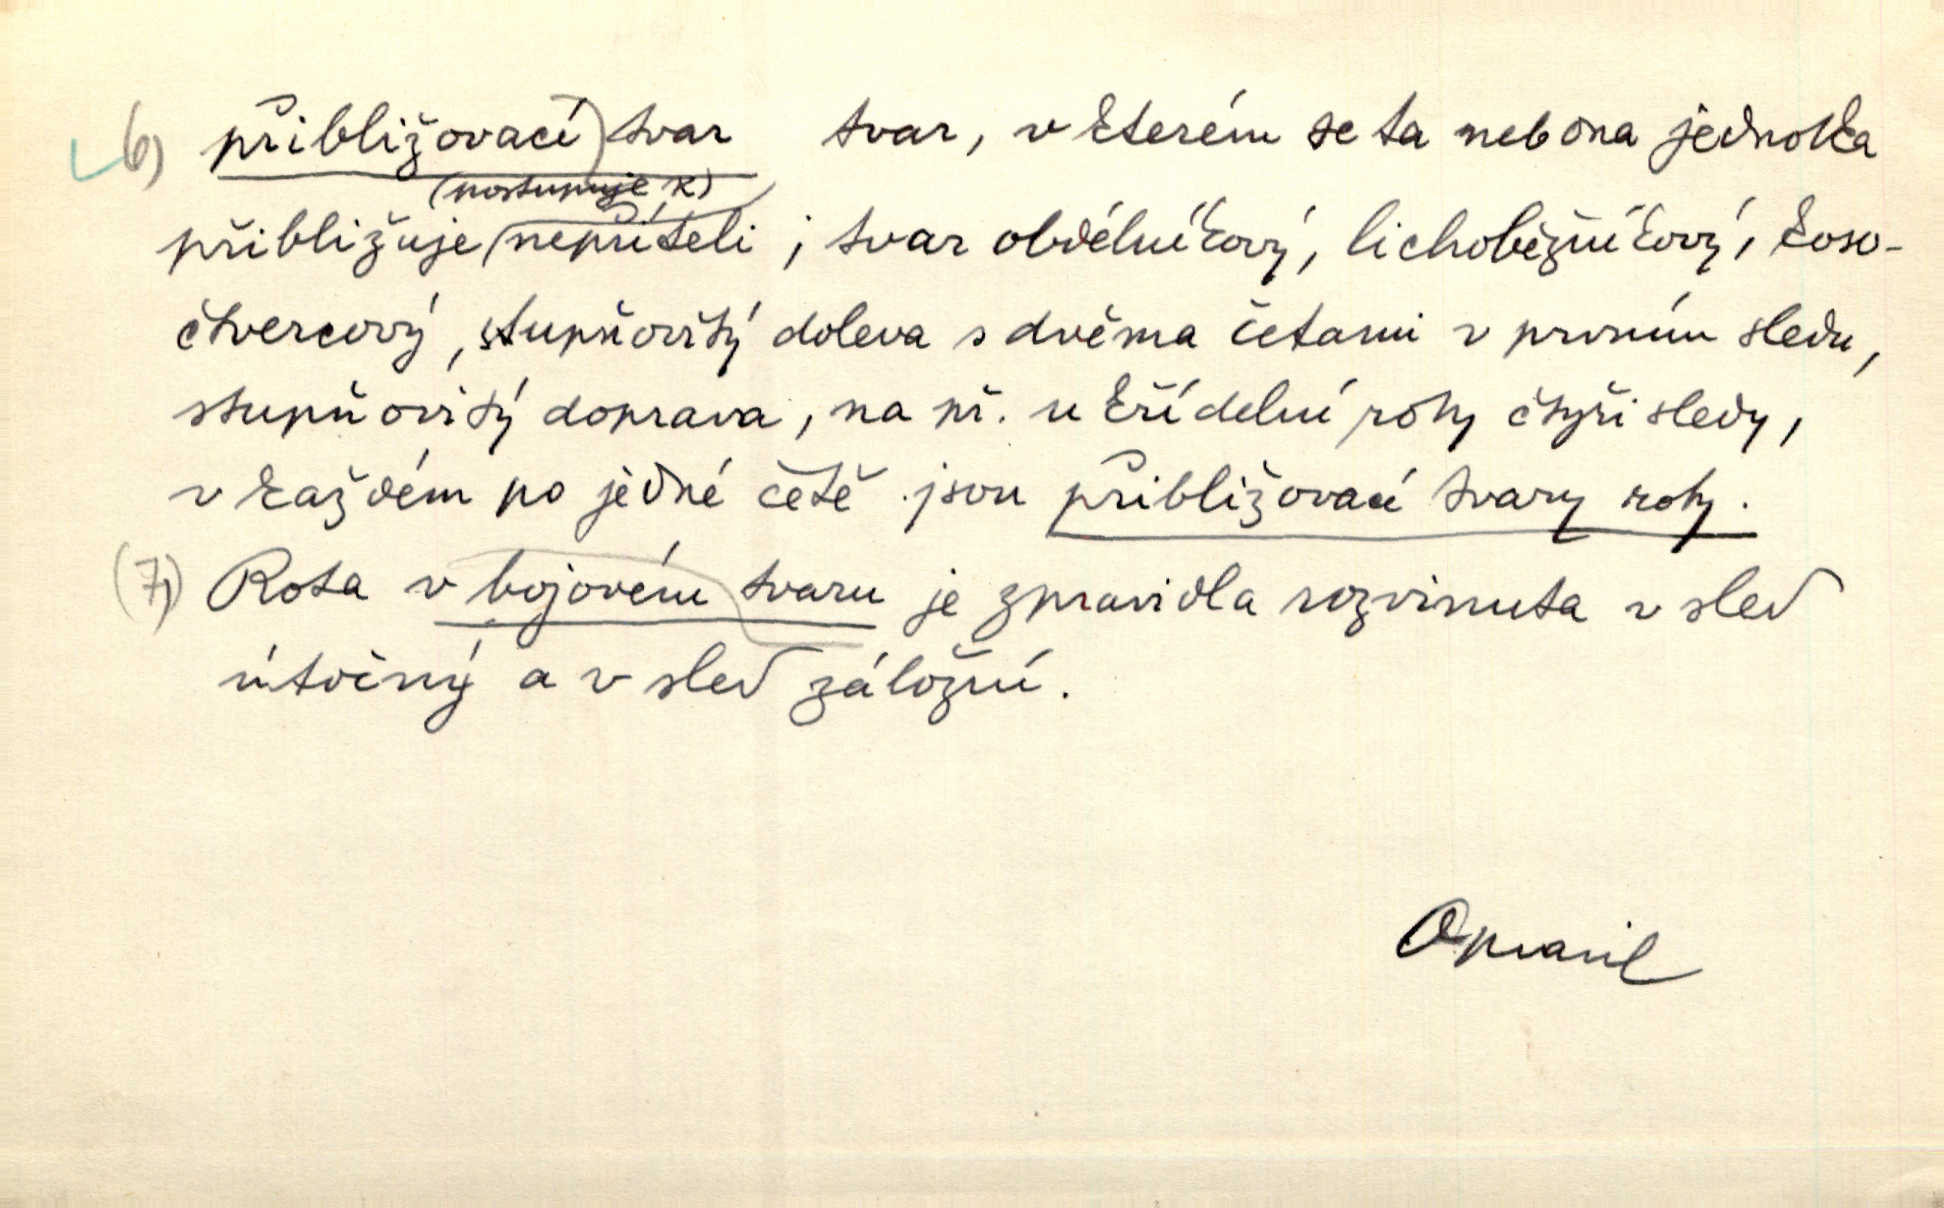 6) přibližovací tvar tvar, v kterém se ta neb ona jednotka
(postupuje k)
přibližuje nepříteli ; tvar obdélníkový, lichoběžníkový, koso-
čtvercový, stupňovitý doleva s dvěma četami v prvním sledu,
stupňovitý doprava, na př. u křídelní roty čtyři sledy,
v každém po jedné četě jsou přibližovací tvary roty.
(7) Rota v bojovém tvaru je zpravidla rozvinuta v sled
útočný a v sled záložní.
Opravil